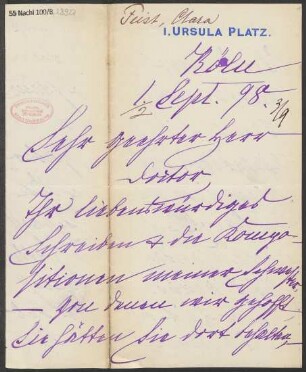 SS Nachl 100/B,
Feist, Clara
1. URSULA PLATZ.
Köln
1/2 Sept. 98.
3/9
Sehr geehrter Herr
Doctor
Ihr liebenswürdiges
Schreiben & die Kompo-
sitionen meiner Schwester,
– von denen wir gehofft
Sie hätten sie dort behalten,